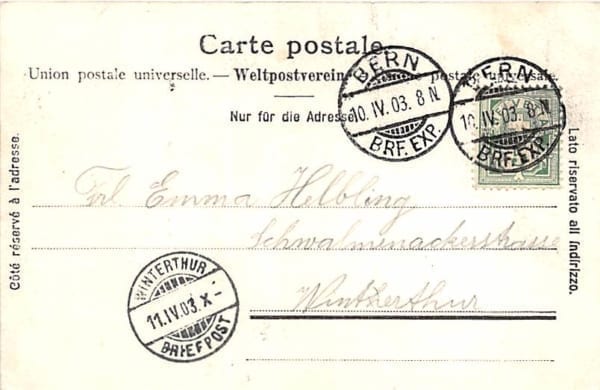 Carte postale.
Union postale universelle. — Weltpostverein. — postale universale.
Nur für die Adresse.
BERN
10.IV.03. 8 N
BRF. EXP.
BERN
10.IV.03. 8 N
BRF. EXP.
Côté réservé à l'adresse.
Lato riservato all indirizzo.
Frl. Emma Helbling
Schwalmenackerstrasse
Winterthur
WINTERTHUR
11.IV.03. X -
BRIEFPOST